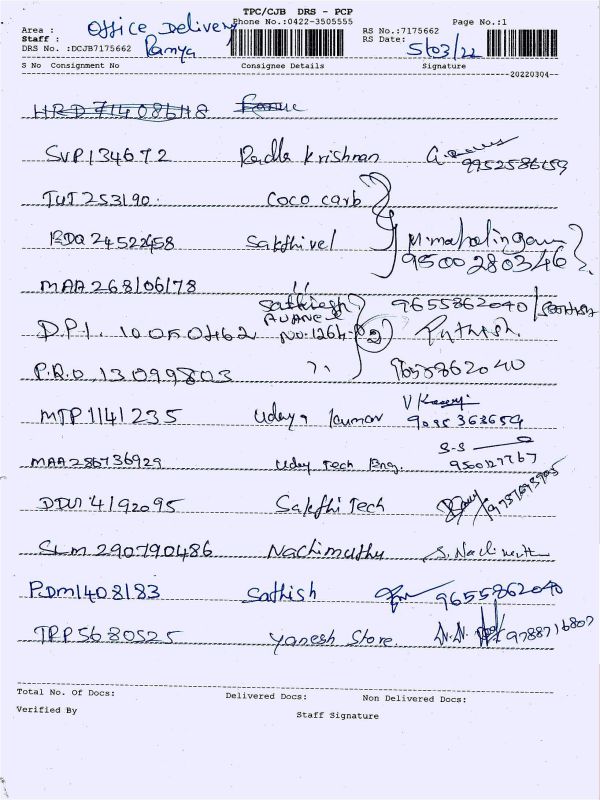 TPC/CJB DRS - PCP
Area : Office Delivery Phone No.:0422-3505555 RS No.:7175662 Page No.:1
Staff : Ramya RS Date: 5/03/22
DRS No. :DCJB7175662
S No Consignment No Consignee Details Signature
20220304
SVP134672 Radha Krishnan 9952586159
TUT253190. Coco carb
RDQ 24522458 Sakthivel M.mahalingam
9500280346
MAA268106178 ,,
Sathiesh 9655862040
D.P.I. 10050462 No.1264
P.R.O. 13099803 ,, 9655862040
MTP1141235 Udaya kumar 9035363659
MAA286736929 Uday Tech Eng. S-S
DDU 4192095 Sakthi Tech
SLM290790486 Nachimuthu S. Nachimuthu
PDM1408183 Sathish 9655862040
TRP5680525 Yanesh Store. 9788716807
Total No. Of Docs: Delivered Docs: Non Delivered Docs:
Verified By Staff Signature